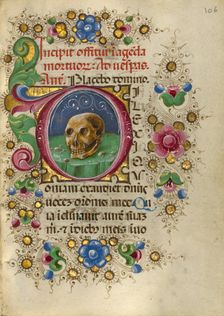 106
Incipit offitiu ageda
mortuor. Ad vespas.
Ant. Placebo domino.
DILEXI QUO
niam exaudiet dns
uocem oronis mee. Qu
ia iclinauit aurē sua
m. & i diebus meis iuo